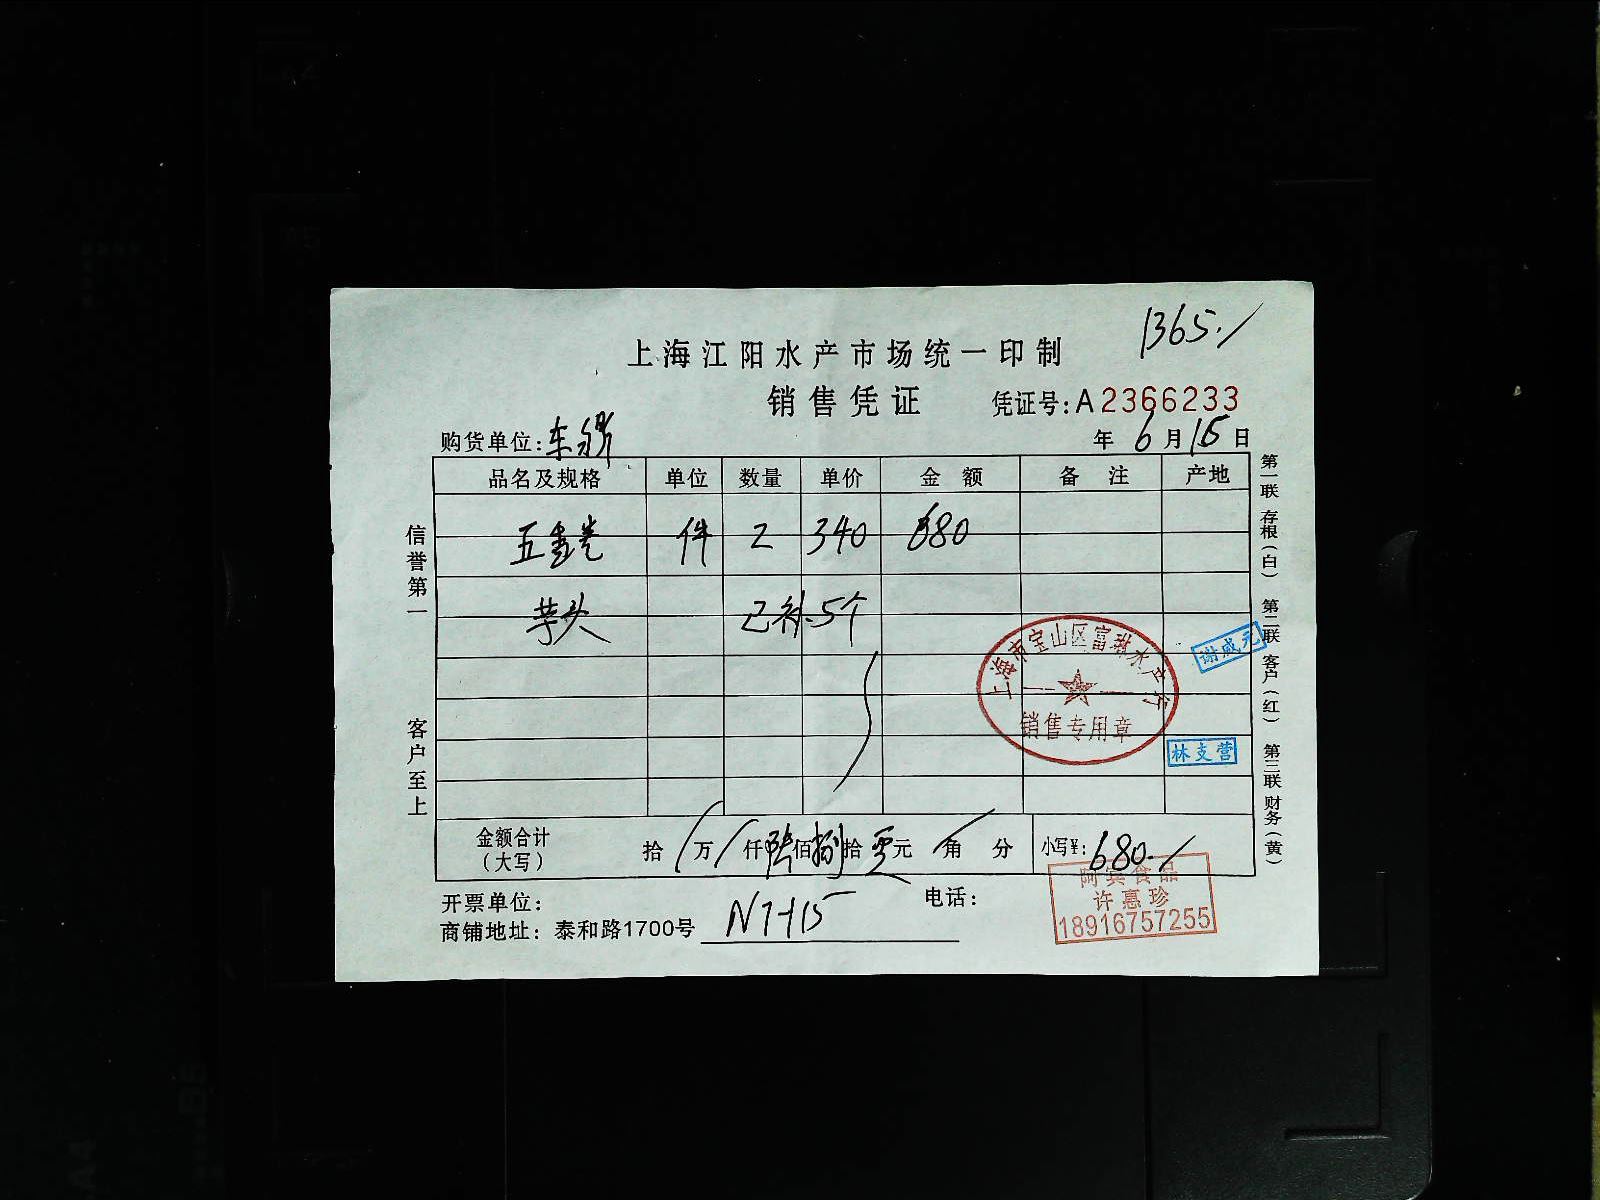 1365./
上海江阳水产市场统一印制
销售凭证
凭证号:A2366233
购货单位:东
年 6月15日
品名及规格 单位 数量 单价 金额 备注 产地
五香卷 件 2 340 680
芋头 已补.5个
金额合计(大写) 拾 / 万 / 仟 陆佰 捌拾 零元 / 角 分 小写¥: 680./
开票单位:
电话:
商铺地址: 泰和路1700号 N7-115
信誉第一
客户至上
第一联 存根(白) 第二联 客户(红) 第三联 财务(黄)
上海市宝山区富琳水产行
销售专用章
谢威元
林支营
阿宾食品
许惠珍
18916757255